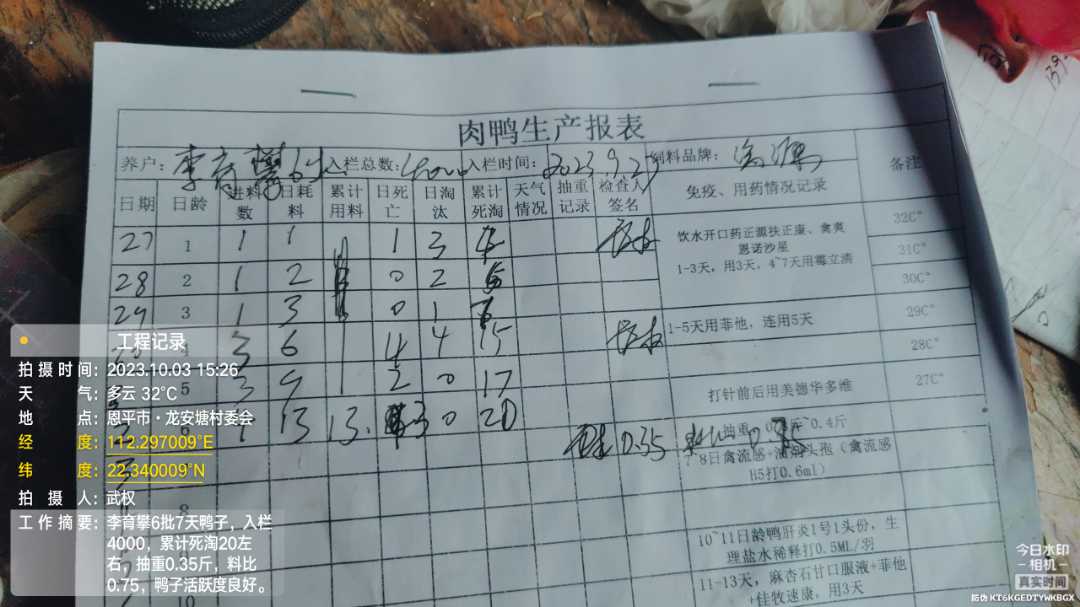 肉鸭生产报表
养户: 李育攀6批 入栏总数: 4000 入栏时间: 2023.9.27 饲料品牌:
备注
日期 日龄 进料数 日耗料 累计用料 日死亡 日淘汰 累计死淘 天气情况 抽重记录 检查人签名 免疫、用药情况记录
27 1 1 1 1 3 4
28 2 1 2 0 2
29 3 1 3 0 1
3 6 1 4 4 15
5 3 9 1 2 0 17
1 13 13. 3 0 20
饮水开口药正源扶正康、禽黄
恩诺沙星
1-3天,用3天,4~7天用霉立清
32C°
31C°
30C°
1-5天用菲他,连用5天
29C°
28C°
打针前后用美德华多维
27C°
抽重
0.4斤
0.35
7-8日禽流感+
头孢(禽流感
H5打0.6ml)
10~11日龄鸭肝炎1号1头份,生
理盐水稀释打0.5ML/羽
11-13天,麻杏石甘口服液+菲他
+佳牧速康,用3天
10
工程记录
拍摄时间: 2023.10.03 15:26
天气: 多云 32℃
地点: 恩平市·龙安塘村委会
经度: 112.297009°E
纬度: 22.340009°N
拍摄人: 武权
工作摘要: 李育攀6批7天鸭子,入栏
4000,累计死淘20左
右,抽重0.35斤,料比
0.75,鸭子活跃度良好。
今日水印
-相机-
真实时间
防伪 KT6KGEDTYWKBGX